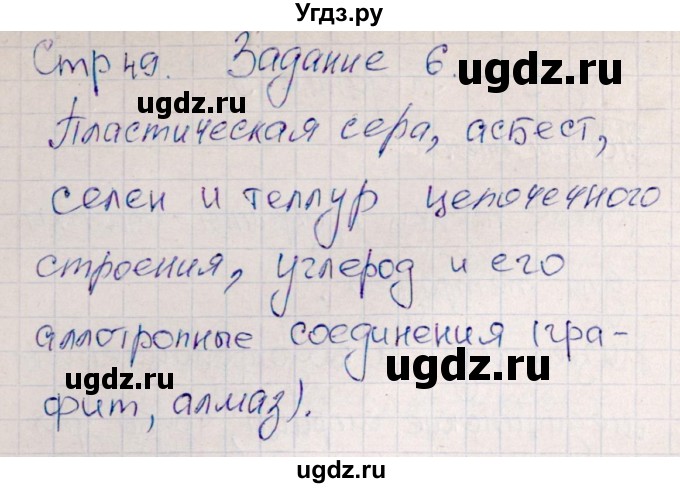 Угдз.ру
Стр 49. Задание 6.
ugdz.ru
ugdz.ru
Пластическая сера, асбест,
селен и теллур цепочечного
строения, углерод и его
аллотропные соединения (гра-
ugdz.ru
ugdz.ru
фит, алмаз).
ugdz.ru
ugdz.ru